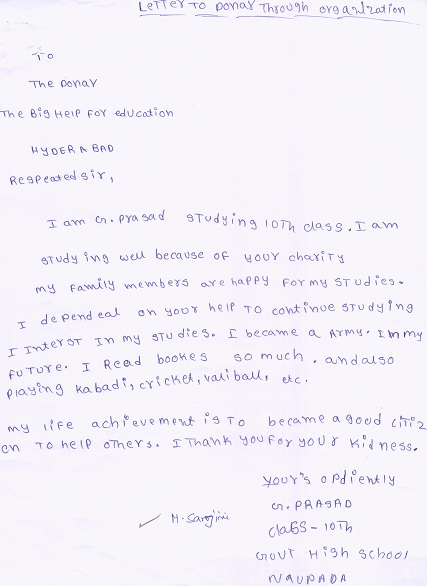 Letter To Donar Through organization
To
The Donar
The Big Help For education
HYDERABAD
Respeated sir,
I am G. prasad studying 10Th class. I am
study ing well because of your charity
my family members are happy for my studies.
I dependeal on your help To continue studying
I Interst In my studies. I became a Army. In my
future. I Read bookes so much. and also
playing kabadi, cricket, valiball, etc.
my life achievement is To became a good citiz
en To help others. I Thank you for your kidness.
your's opdiently
G. PRASAD
class - 10Th
M. Sarojini
Govt High School
NAUPADA